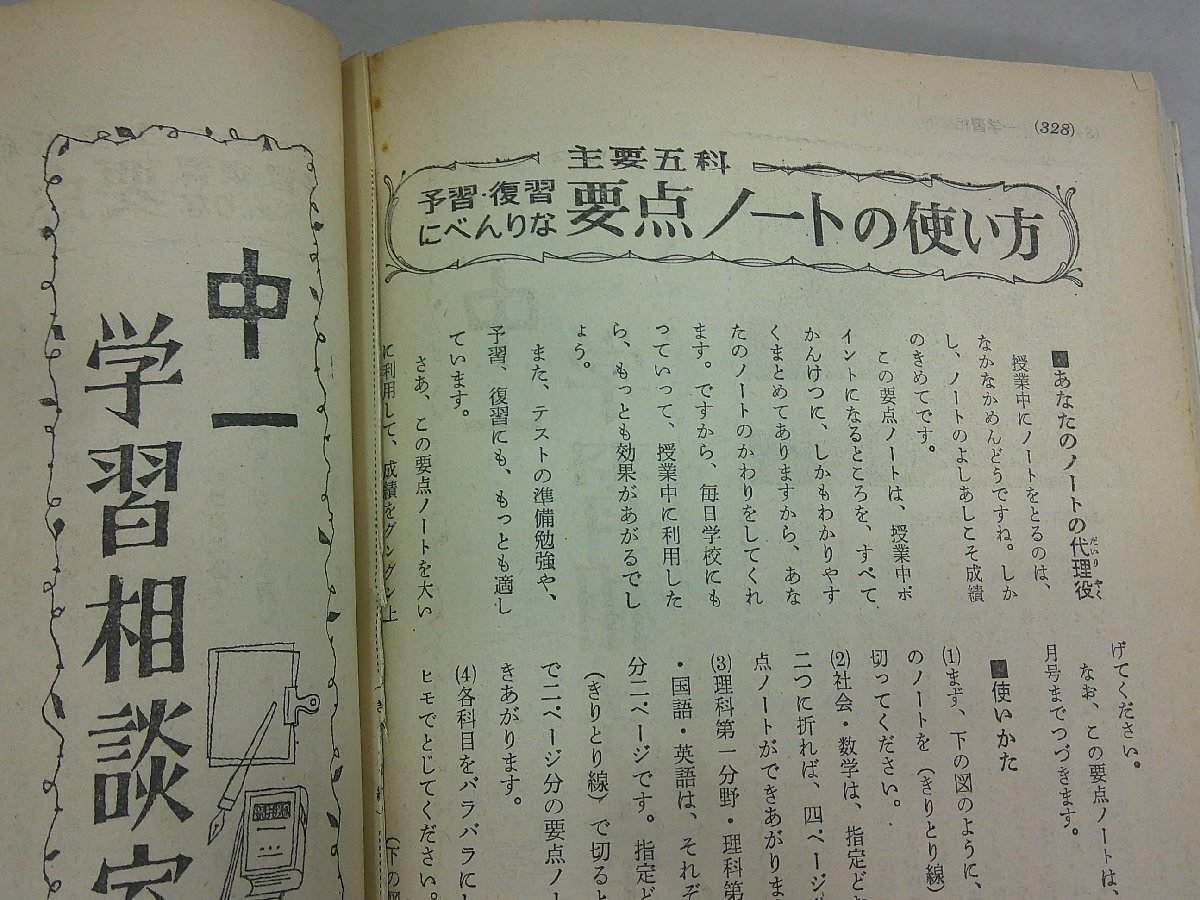 (328)
主要五科
予習・復習
にべんりな
要点ノートの使い方
■あなたのノートの代理役
だいり やく
授業中にノートをとるのは、
なかなかめんどうですね。しか
し、ノートのよしあしこそ成績
のきめてです。
この要点ノートは、授業中ポ
イントになるところを、すべて、
かんけつに、しかもわかりやす
くまとめてありますから、あな
たのノートのかわりをしてくれ
ます。ですから、毎日学校にも
っていって、授業中に利用した
ら、もっとも効果があがるでし
ょう。
また、テストの準備勉強や、
予習、復習にも、もっとも適し
ています。
さあ、この要点ノートを大い
に利用して、成績をグングン上
げてください。
なお、この要点ノートは、
月号までつづきます。
■使いかた
(1)まず、下の図のように、
のノートを（きりとり線）
切ってください。
(2)社会・数学は、指定どお
二つに折れば、四ページ
点ノートができあがりま
(3)理科第一分野・理科第
・国語・英語は、それぞ
分二ページです。指定ど
（きりとり線）で切ると
で二ページ分の要点ノー
きあがります。
(4)各科目をバラバラにし
ヒモでとじてください。
（下の図
中一
学習相談室